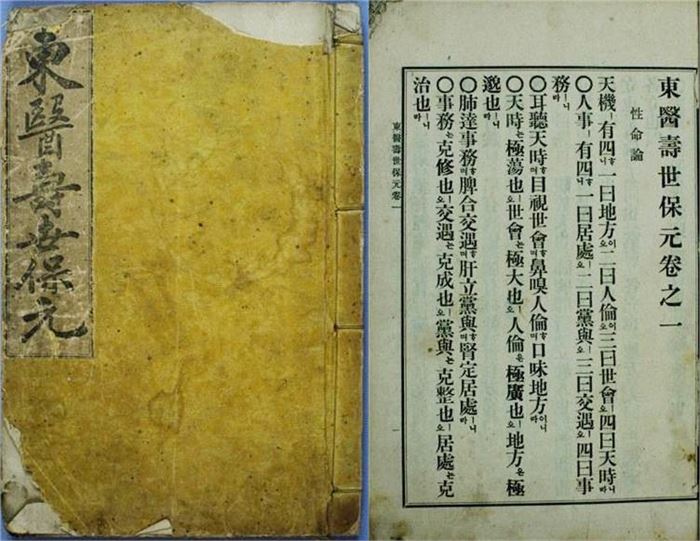 東醫壽世保元
東醫壽世保元卷之一
性命論
天機ㅣ有四ᄒᆞ니一曰地方이오二曰人倫이오三曰世會ㅣ오四曰天時ㅣ니라
○人事ㅣ有四ᄒᆞ니一曰居處ㅣ오二曰黨與ㅣ오三曰交遇ㅣ오四曰事
務ㅣ니라
○耳聽天時ᄒᆞ며目視世會ᄒᆞ며鼻嗅人倫ᄒᆞ며口味地方이니라
○天時는極蕩也ㅣ오世會는極大也ㅣ오人倫은極廣也ㅣ오地方은極
邈也ㅣ니라
○肺達事務ᄒᆞ며脾合交遇ᄒᆞ며肝立黨與ᄒᆞ며腎定居處ᄒᆞ니라
○事務는克修也ㅣ오交遇는克成也ㅣ오黨與는克整也ㅣ오居處는克
治也ㅣ니라
東醫壽世保元卷一
一